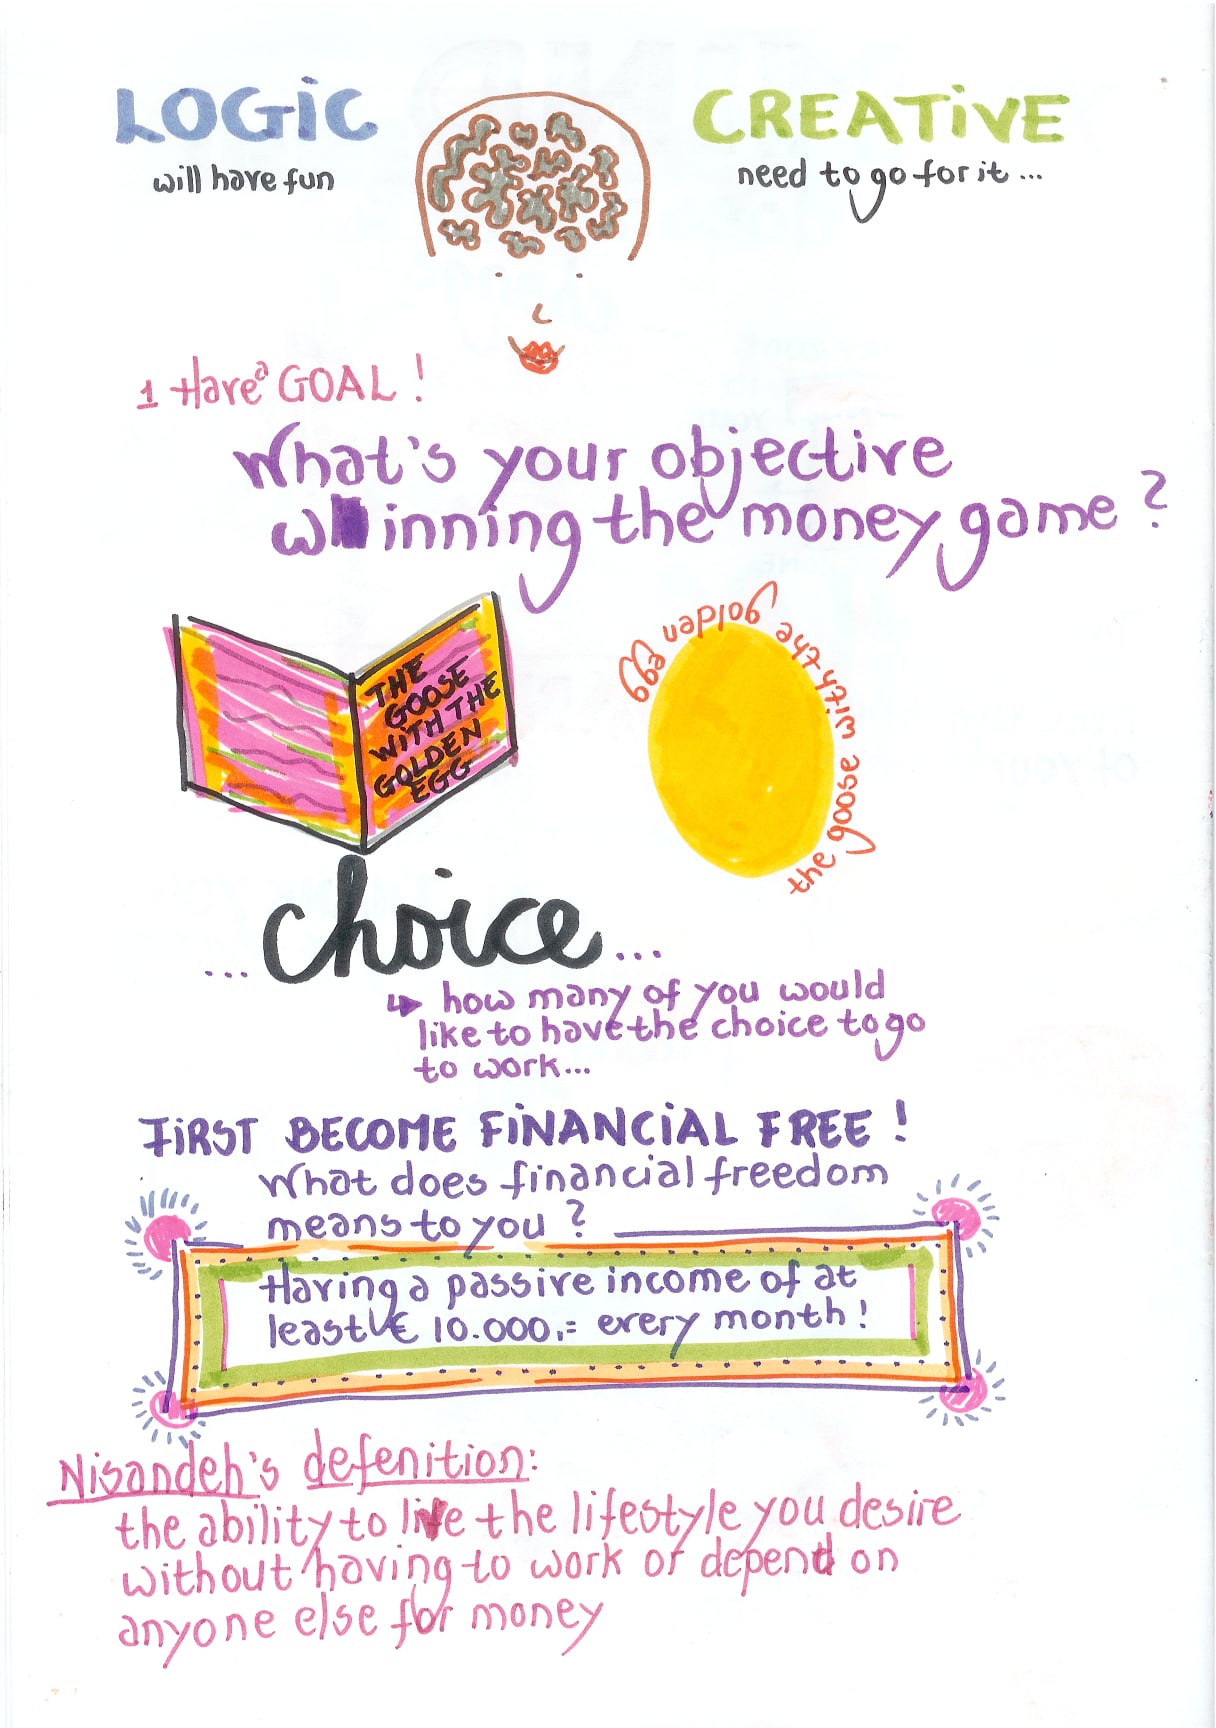 LOGiC
will have fun
CREATiVE
need to go for it...
1 Have a GOAL!
What's your objective
winning the money game?
THE
GOOSE
WITH THE
GOLDEN
EGG
the goose with the golden egg
...choice...
↳ how many of you would
like to have the choice to go
to work...
FiRST BECOME FiNANCiAL FREE!
What does financial freedom
means to you?
Having a passive income of at
least € 10.000,= every month!
Nisandeh's defenition:
the ability to live the lifestyle you desire
without having to work or depend on
anyone else for money